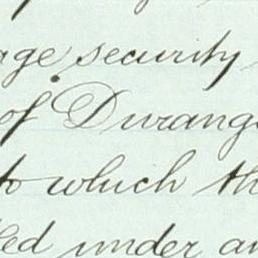 age security
of Durango
to which th
led under an